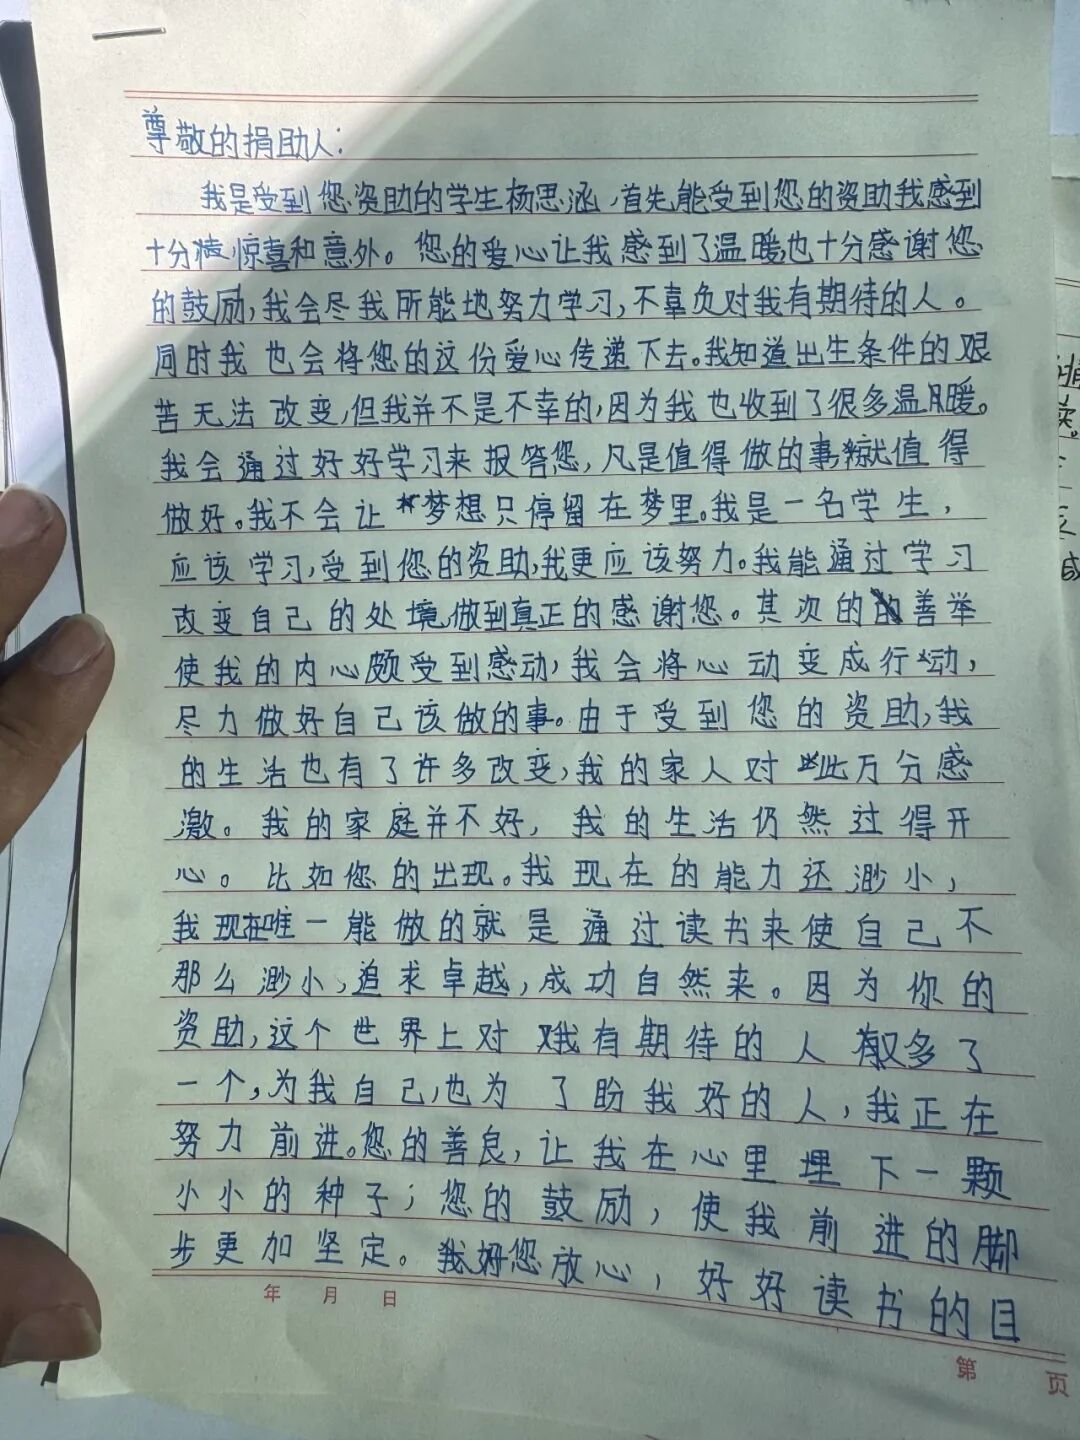 尊敬的捐助人:
我是受到您资助的学生杨思涵,首先能受到您的资助我感到
十分惊喜和意外。您的爱心让我感到了温暖,也十分感谢您
的鼓励,我会尽我所能地努力学习,不辜负对我有期待的人。
同时我也会将您的这份爱心传递下去。我知道出生条件的艰
苦无法改变,但我并不是不幸的,因为我也收到了很多温暖。
我会通过好好学习来报答您,凡是值得做的事,就值得
做好。我不会让梦想只停留在梦里。我是一名学生,
应该学习,受到您的资助,我更应该努力。我能通过学习
改变自己的处境,做到真正的感谢您。其次的善举
使我的内心颇受到感动,我会将心动变成行动,
尽力做好自己该做的事。由于受到您的资助,我
的生活也有了许多改变,我的家人对此万分感
激。我的家庭并不好,我的生活仍然过得开
心。比如您的出现。我现在的能力还渺小,
我现在唯一能做的就是通过读书来使自己不
那么渺小,追求卓越,成功自然来。因为你的
资助,这个世界上对我有期待的人又多了
一个,为我自己,也为了盼我好的人,我正在
努力前进。您的善良,让我在心里埋下一颗
小小的种子;您的鼓励,使我前进的脚
步更加坚定。您放心,好好读书的目
年 月 日
第 页